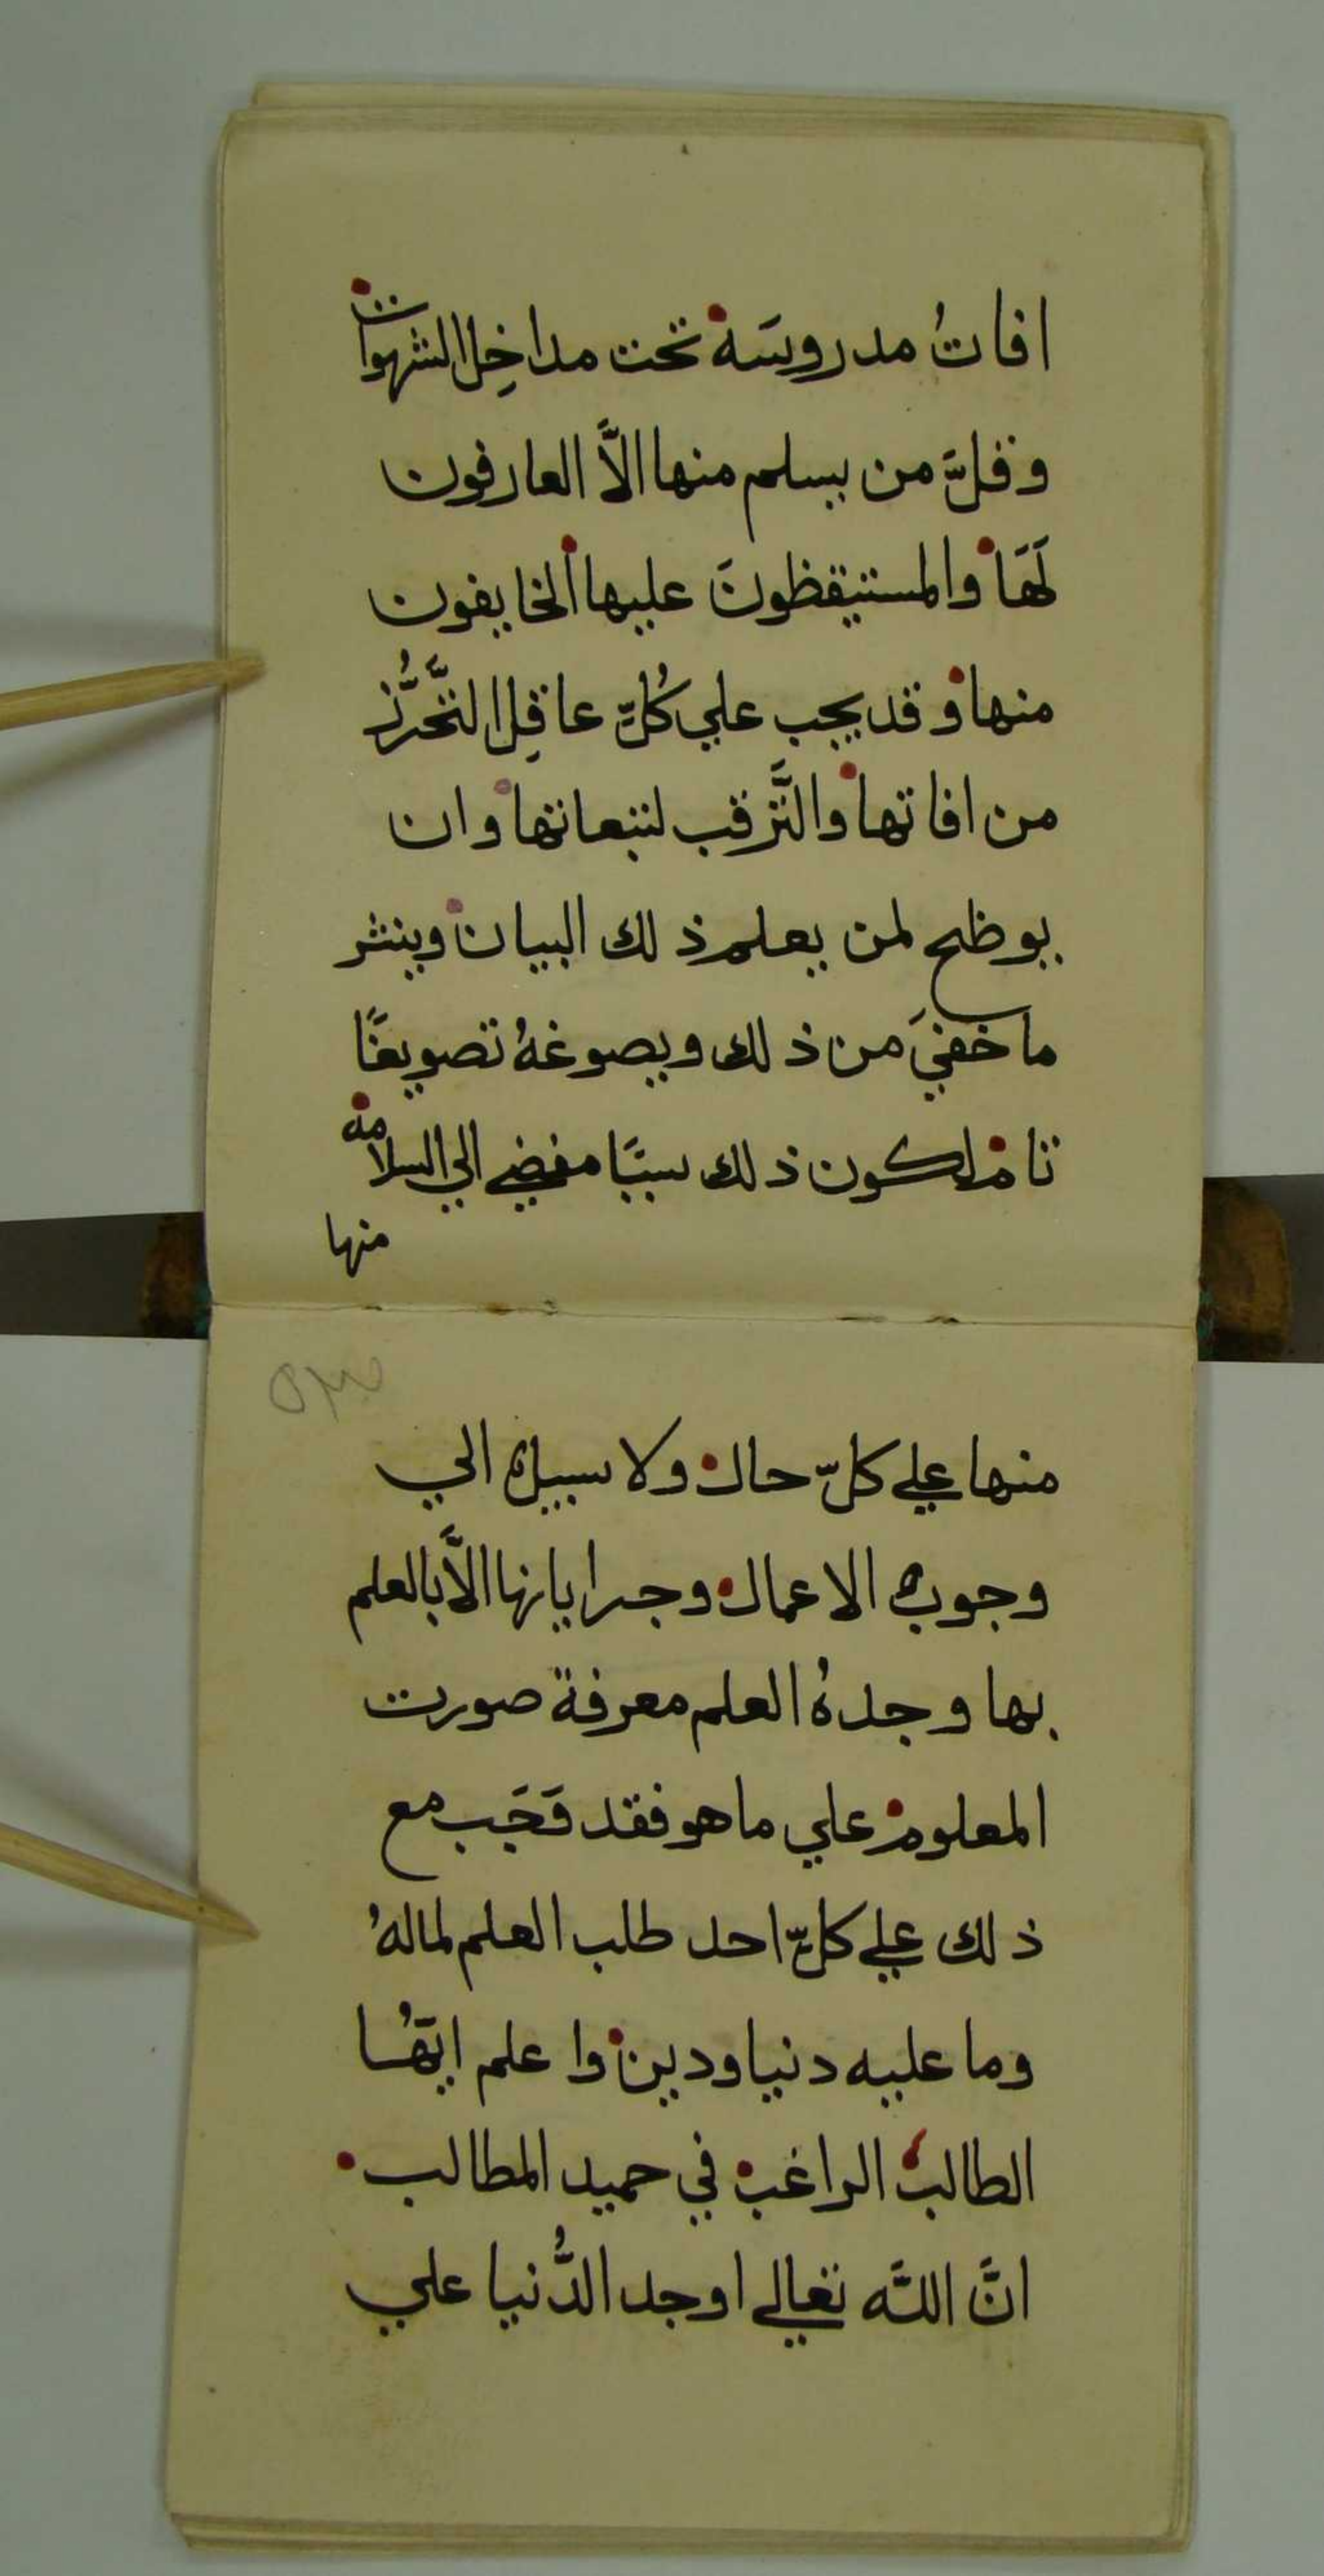 افاتُ مدروسَة تحت مداخِل الشهوات
وقلَّ من يسلم منها الاَّ العارفون
لَهَا والمستيقظونَ عليها الخايفون
منها وقد يجب علي كُلِّ عاقِل التَّحَرُّز
من افاتها والتَّرقب لتبعاتها وان
يوظح لمن يعلم ذلك البيان وينثر
ما خفيَ من ذلك ويصوغهُ تصويغًا
تام لكون ذلك سببًا مفضي الي السلامه
منها
منها علي كلّ حال ولا سبيل الي
وجوب الاعمال وجراياتها الاَّ بالعلم
بها وحدهُ العلم معرفة صورت
المعلوم علي ما هو فقد وَجَب مع
ذلك علي كلِّ احد طلب العلم لمالهُ
وما عليه دنيا ودين واعلم ايّهُا
الطالب الراغب في حميد المطالب
انَّ اللّه تعالي اوجد الدُّنيا علي